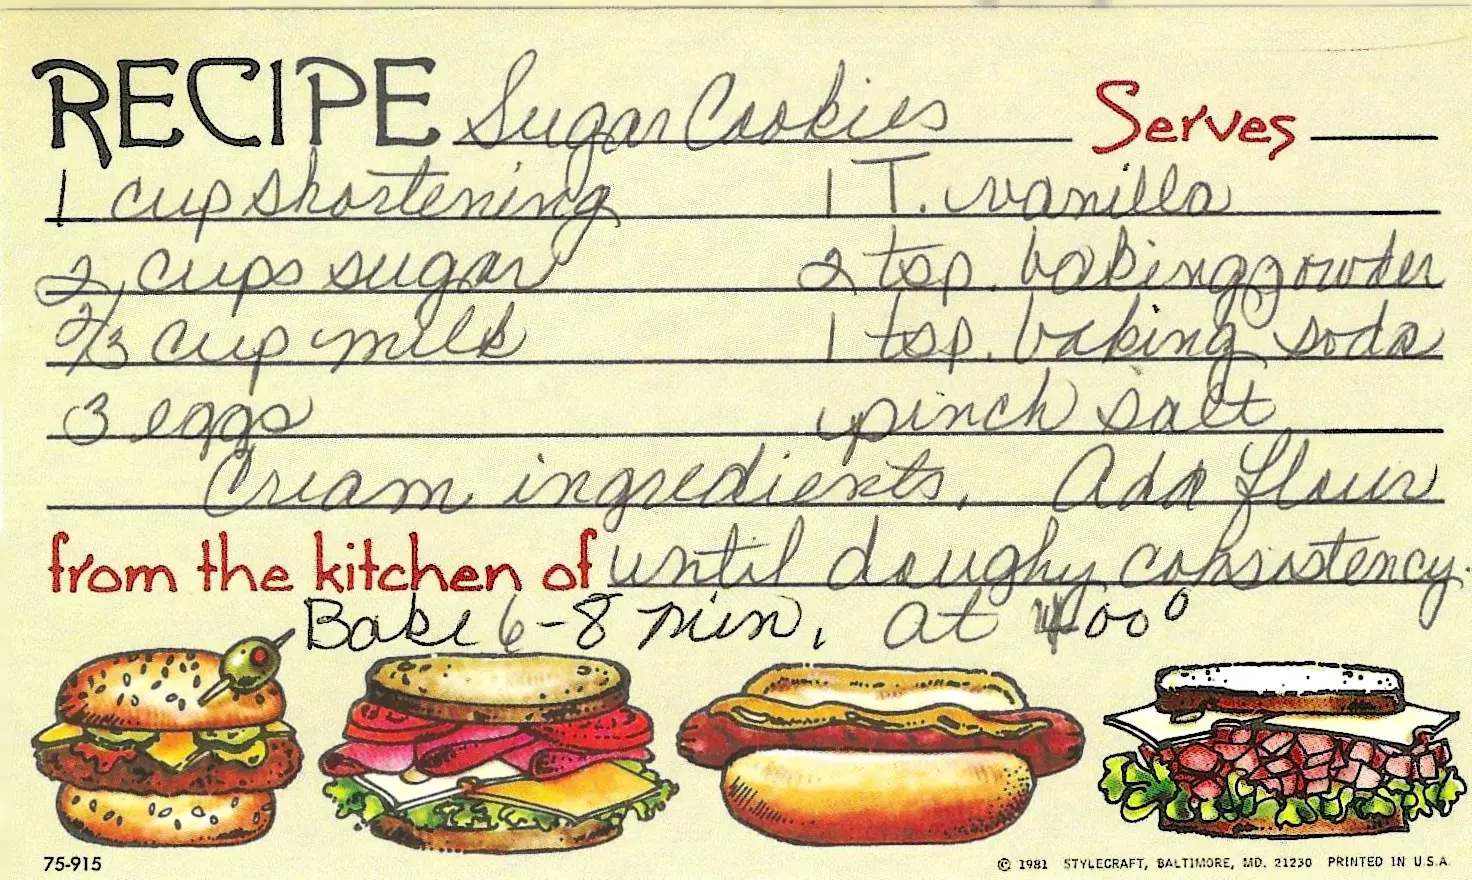 RECIPE Sugar Cookies Serves
1 cup shortening 1 T. vanilla
2 cups sugar 2 tsp. baking powder
2/3 cup milk 1 tsp. baking soda
3 eggs 1 pinch salt
Cream ingredients. Add flour
from the kitchen of until doughy consistency.
Bake 6-8 min. at 400°
75-915 © 1981 STYLECRAFT, BALTIMORE, MD. 21230 PRINTED IN U.S.A.